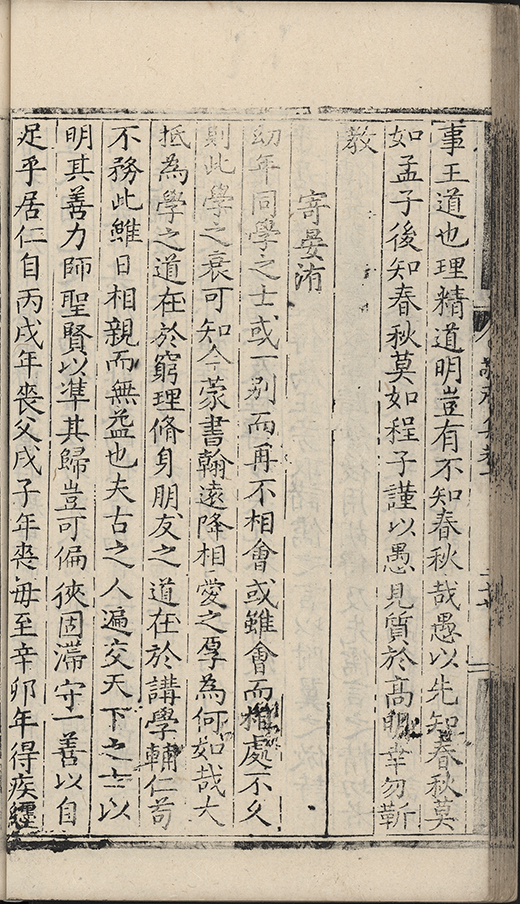 事王道也理精道明豈有不知春秋哉愚以先知春秋莫
如孟子後知春秋莫如程子謹以愚見質於高明幸勿靳
教
寄晏洧
幼年同學之士或一别而再不相會或雖會而相處不久
則此學之衰可知今蒙書翰遠降相愛之厚為何如哉大
抵為學之道在於窮理脩身朋友之道在於講學輔仁苟
不務此雖日相親而無益也夫古之人遍交天下之士以
明其善力師聖賢以準其歸豈可偏狹固滯守一善以自
足乎居仁自丙戌年喪父戌子年喪毋至辛卯年得疾經